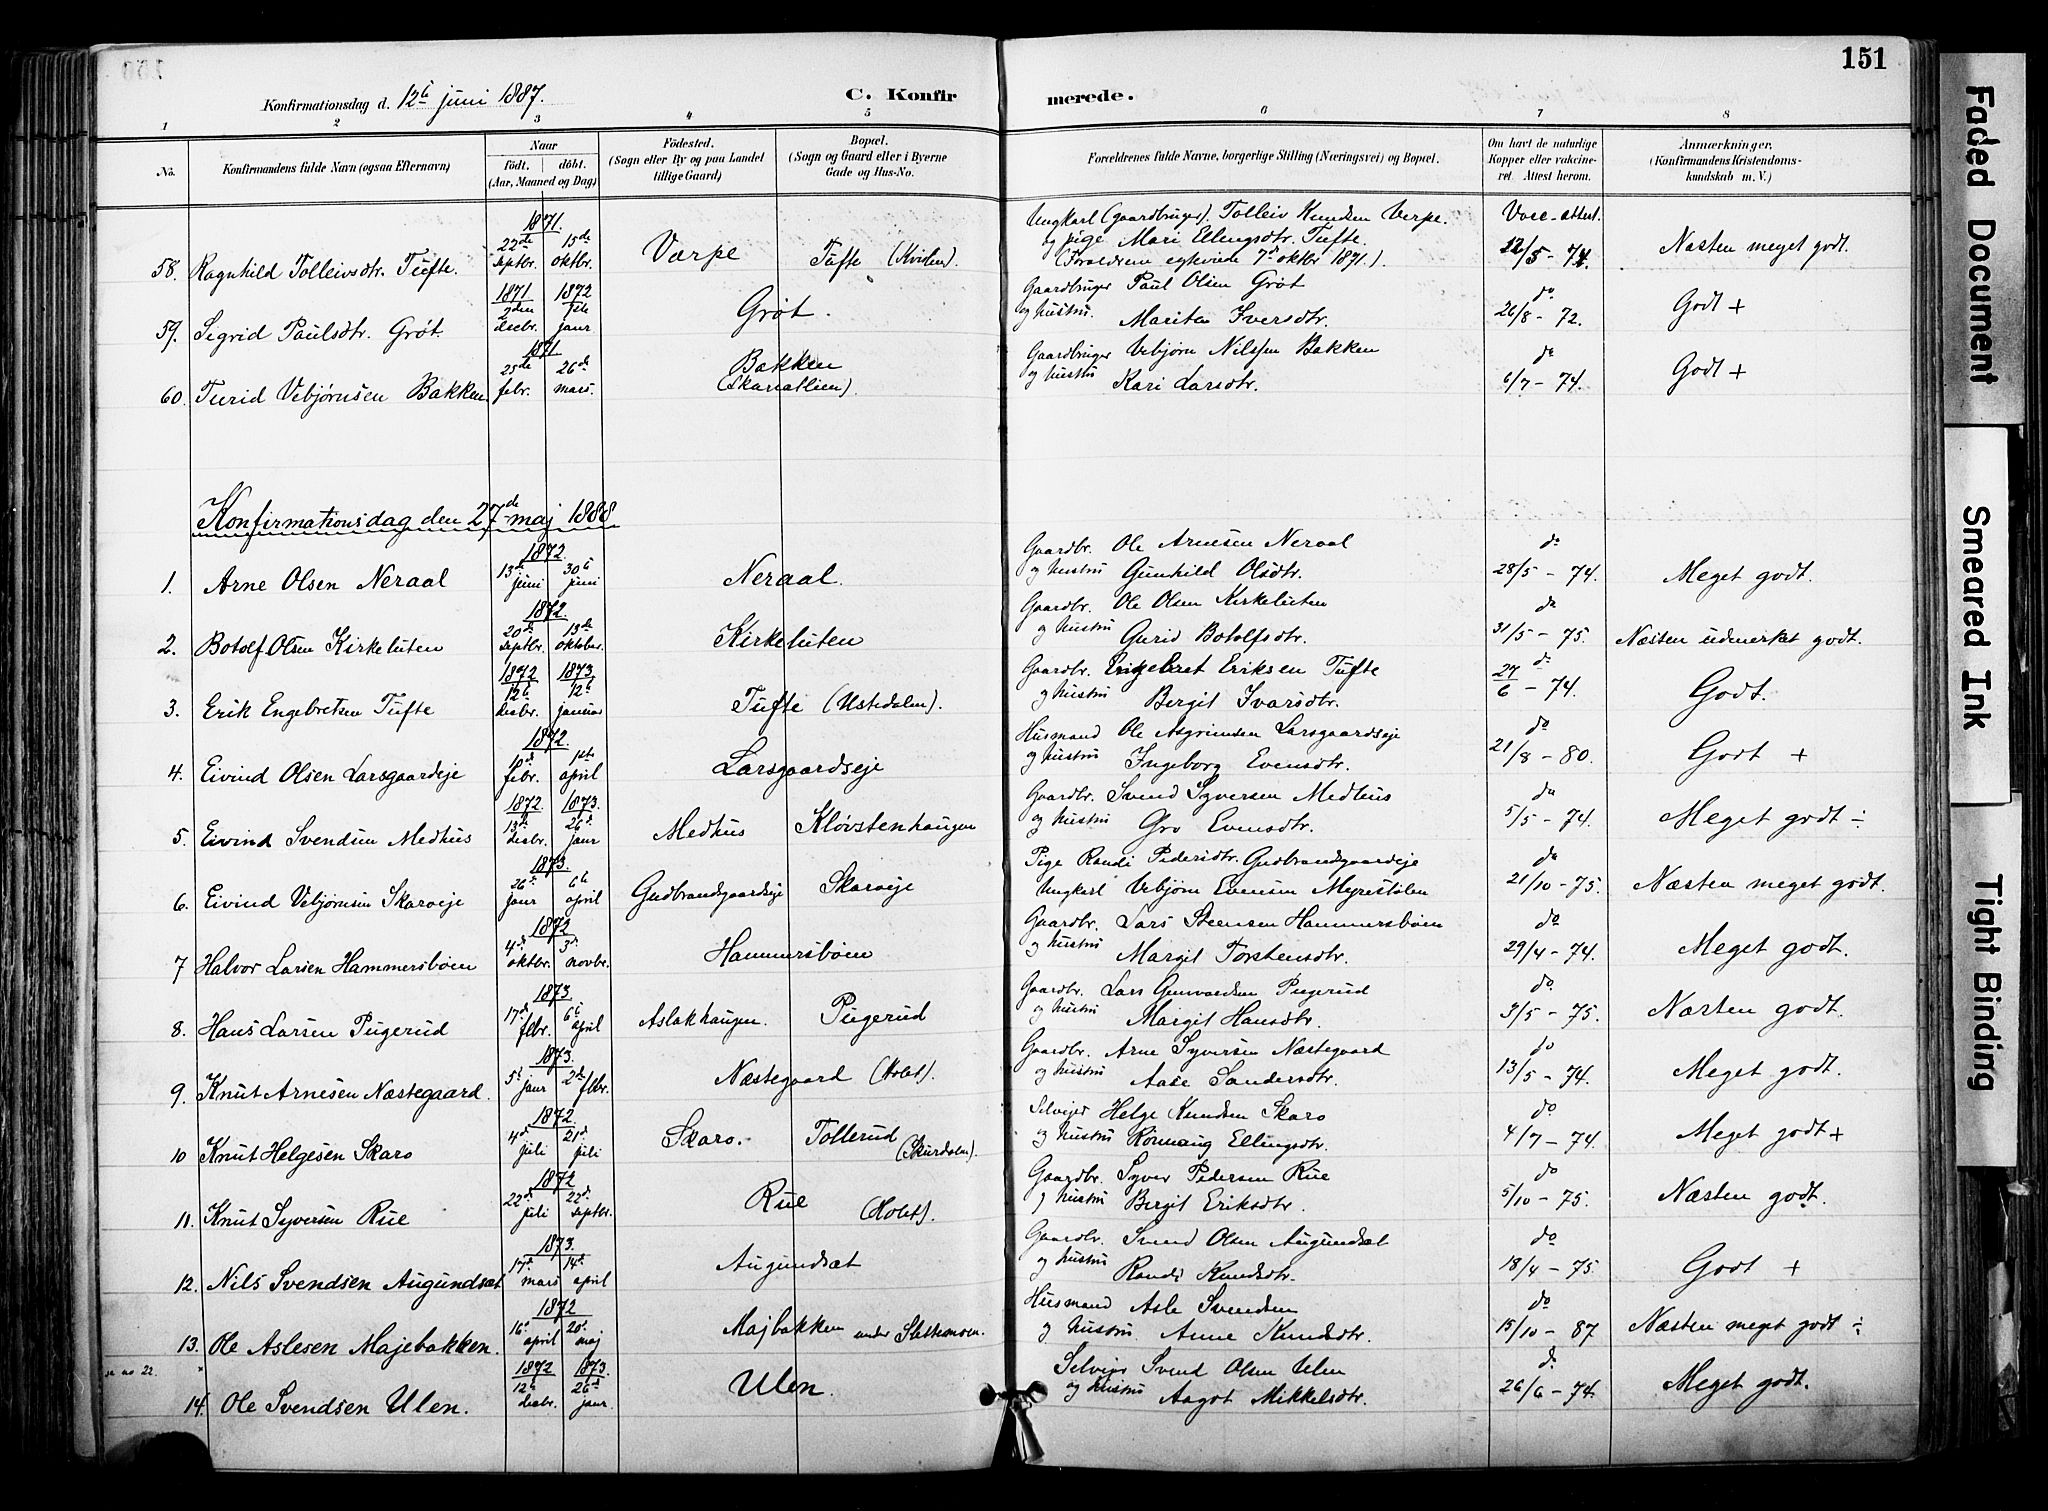 151
Konfirmationsdag d. 12te juni 1887.
C. Konfirmerede.
1 2 3 4 5 6 7 8
No.
Konfirmandens fulde Navn (ogsaa Efternavn)
Naar
født. døbt.
(Aar, Maaned og Dag)
Födested.
(Sogn eller By og paa Landet
tillige Gaard)
Bopæl.
(Sogn og Gaard eller i Byerne
Gade og Hus-No.
Forældrenes fulde Navne, borgerlige Stilling (Næringsvei) og Bopæl.
Om havt de naturlige
Kopper eller vakcine-
ret. Attest herom.
Anmærkninger,
(Konfirmandens Kristendoms-
kundskab m. V.)
58. Ragnhild Tolleivsdtr. Tufte. 1871. 22de septbr. 15de oktbr. Værpe Tufte (Kvilen). Ungkarl (gaardbruger). Tolleiv Knudsen Verpe.
og pige Mari Ellingsdtr. Tufte.
(Forældrene egtviede 7de oktbr 1871.)
Vacc-attest. 22/5 - 74. Næsten meget godt.
59. Sigrid Paulsdtr. Grøt. 1871 2den decbr. 1872 7de jaur Grøt. Gaardbruger Paul Olsen Grøt
og hustru. Mariten Iversdtr. do 26/8 - 72. Godt +
60. Turid Vebjørnsen Bakken. 1871 25de febr. 26de mars. Bakken
(Skaratlien). Gaardbruger Vebjørn Nilssen Bakken
og hustru Kari Larsdtr. do 6/7 - 74. Godt +
Konfirmationsdag den 27de maj 1888
1. Arne Olsen Neraal 1872. 13de juni 30te juni Neraal. Gaardbr. Ole Arnesen Neraal
og hustru Gunhild Olsdtr. do 28/5 - 74. Meget godt.
2. Botolf Olsen Kirkeluten 1872. 20de septbr. 13de oktober. Kirkeluten Gaardbr. Ole Olsen Kirkeluten
og hustru Gurid Botolfsdtr. do 31/5 - 75. Næsten udmerket godt.
3. Erik Engebretsen Tufte 1872 12te desbr. 1873 12te januar Tufte (Ustedalen). Gaardbr. Engebret Eriksen Tufte
og hustru Bergit Ivarsdtr. do 27/6 - 74. Godt.
4. Eivind Olsen Larsgaardeje 1872. 10de febr. 1ste april Larsgaardseje Husmand Ole Asgrimsen Larsgaardseje
og hustru Ingeborg Evensdtr. do 21/8 - 80. Godt +
5. Eivind Svendsen Medhus 1872. 13de desbr. 1873. 26de jaur Medhus Kløvstenhaugen Gaardbr. Svend Syversen Medhus
og hustru Gro Evensdtr. do 5/5 - 74. Meget godt ÷
6. Eivind Vebjørnsen Skarveje 1873. 26de jaur 6te april Gudbrandsgaardseje Skarveje Pige Randi Pedersdtr. Gudbrandsgaardeje
Ungkarl Vebjørn Evensen Myrestølen do 21/10 - 75. Næsten meget godt.
7 Halvor Larsen Hammersbøen 1872 4de oktbr. 3de novbr. Hammersbøen Gaardbr. Lars Steensen Hammersbøen
og hustru Margit Torstensdtr. do 29/4 - 74. Meget godt.
8. Hans Larsen Pugerud 1873. 17de febr. 6te april Aslakhaugen. Pugerud Gaardbr. Lars Gunvardsen Pugerud
og hustru Margit Hansdtr. do 3/5 - 75. Næsten godt.
9. Knut Arnesen Næstegaard. 1873. 5te jaur 2de febr. Næstegaard (Holet). Gaardbr. Arne Syversen Næstegaard
og hustru Aase Sandersdtr. do 13/5 - 74. Meget godt.
10 Knut Helgesen Skaro 1872. 4de juli 21de juli Skaro. Tollerud
(Skurdalen). Selvejer Helge Knudsen Skaro
og hustru Rønnaug Ellingsdtr. do 4/7 - 74. Meget godt +
11. Knut Syversen Rue 1872 22de juli 22de septbr. Rue (Holet). Gaardbr. Syver Pedersen Rue
og hustru Bergit Eriksdtr. do 5/10 - 75. Næsten godt.
12. Nils Svendsen Augundsæt 1873. 17de mars 14de april Augundsæt Gaardbr. Svend Olsen Augundsæt
og hustru Randi Knudsdtr. do 18/4 - 75. Godt +
13. Ole Aslesen Majebakken. 1872 16de april 20de maj Majbakken under Slettemoen. Husmand Asle Svendsen
og hustru. Anne Knudsdtr. do 15/10 - 87 Næsten meget godt ÷
se no 22.
14. Ole Svendsen Ulen. 1872 12te desbr. 1873. 26de jaur. Ulen. Selvejer Svend Olsen Ulen
og hustru Aagot Mikkelsdtr. do 26/6 - 74. Meget godt.
Faded Document
Smeared Ink
Tight Binding